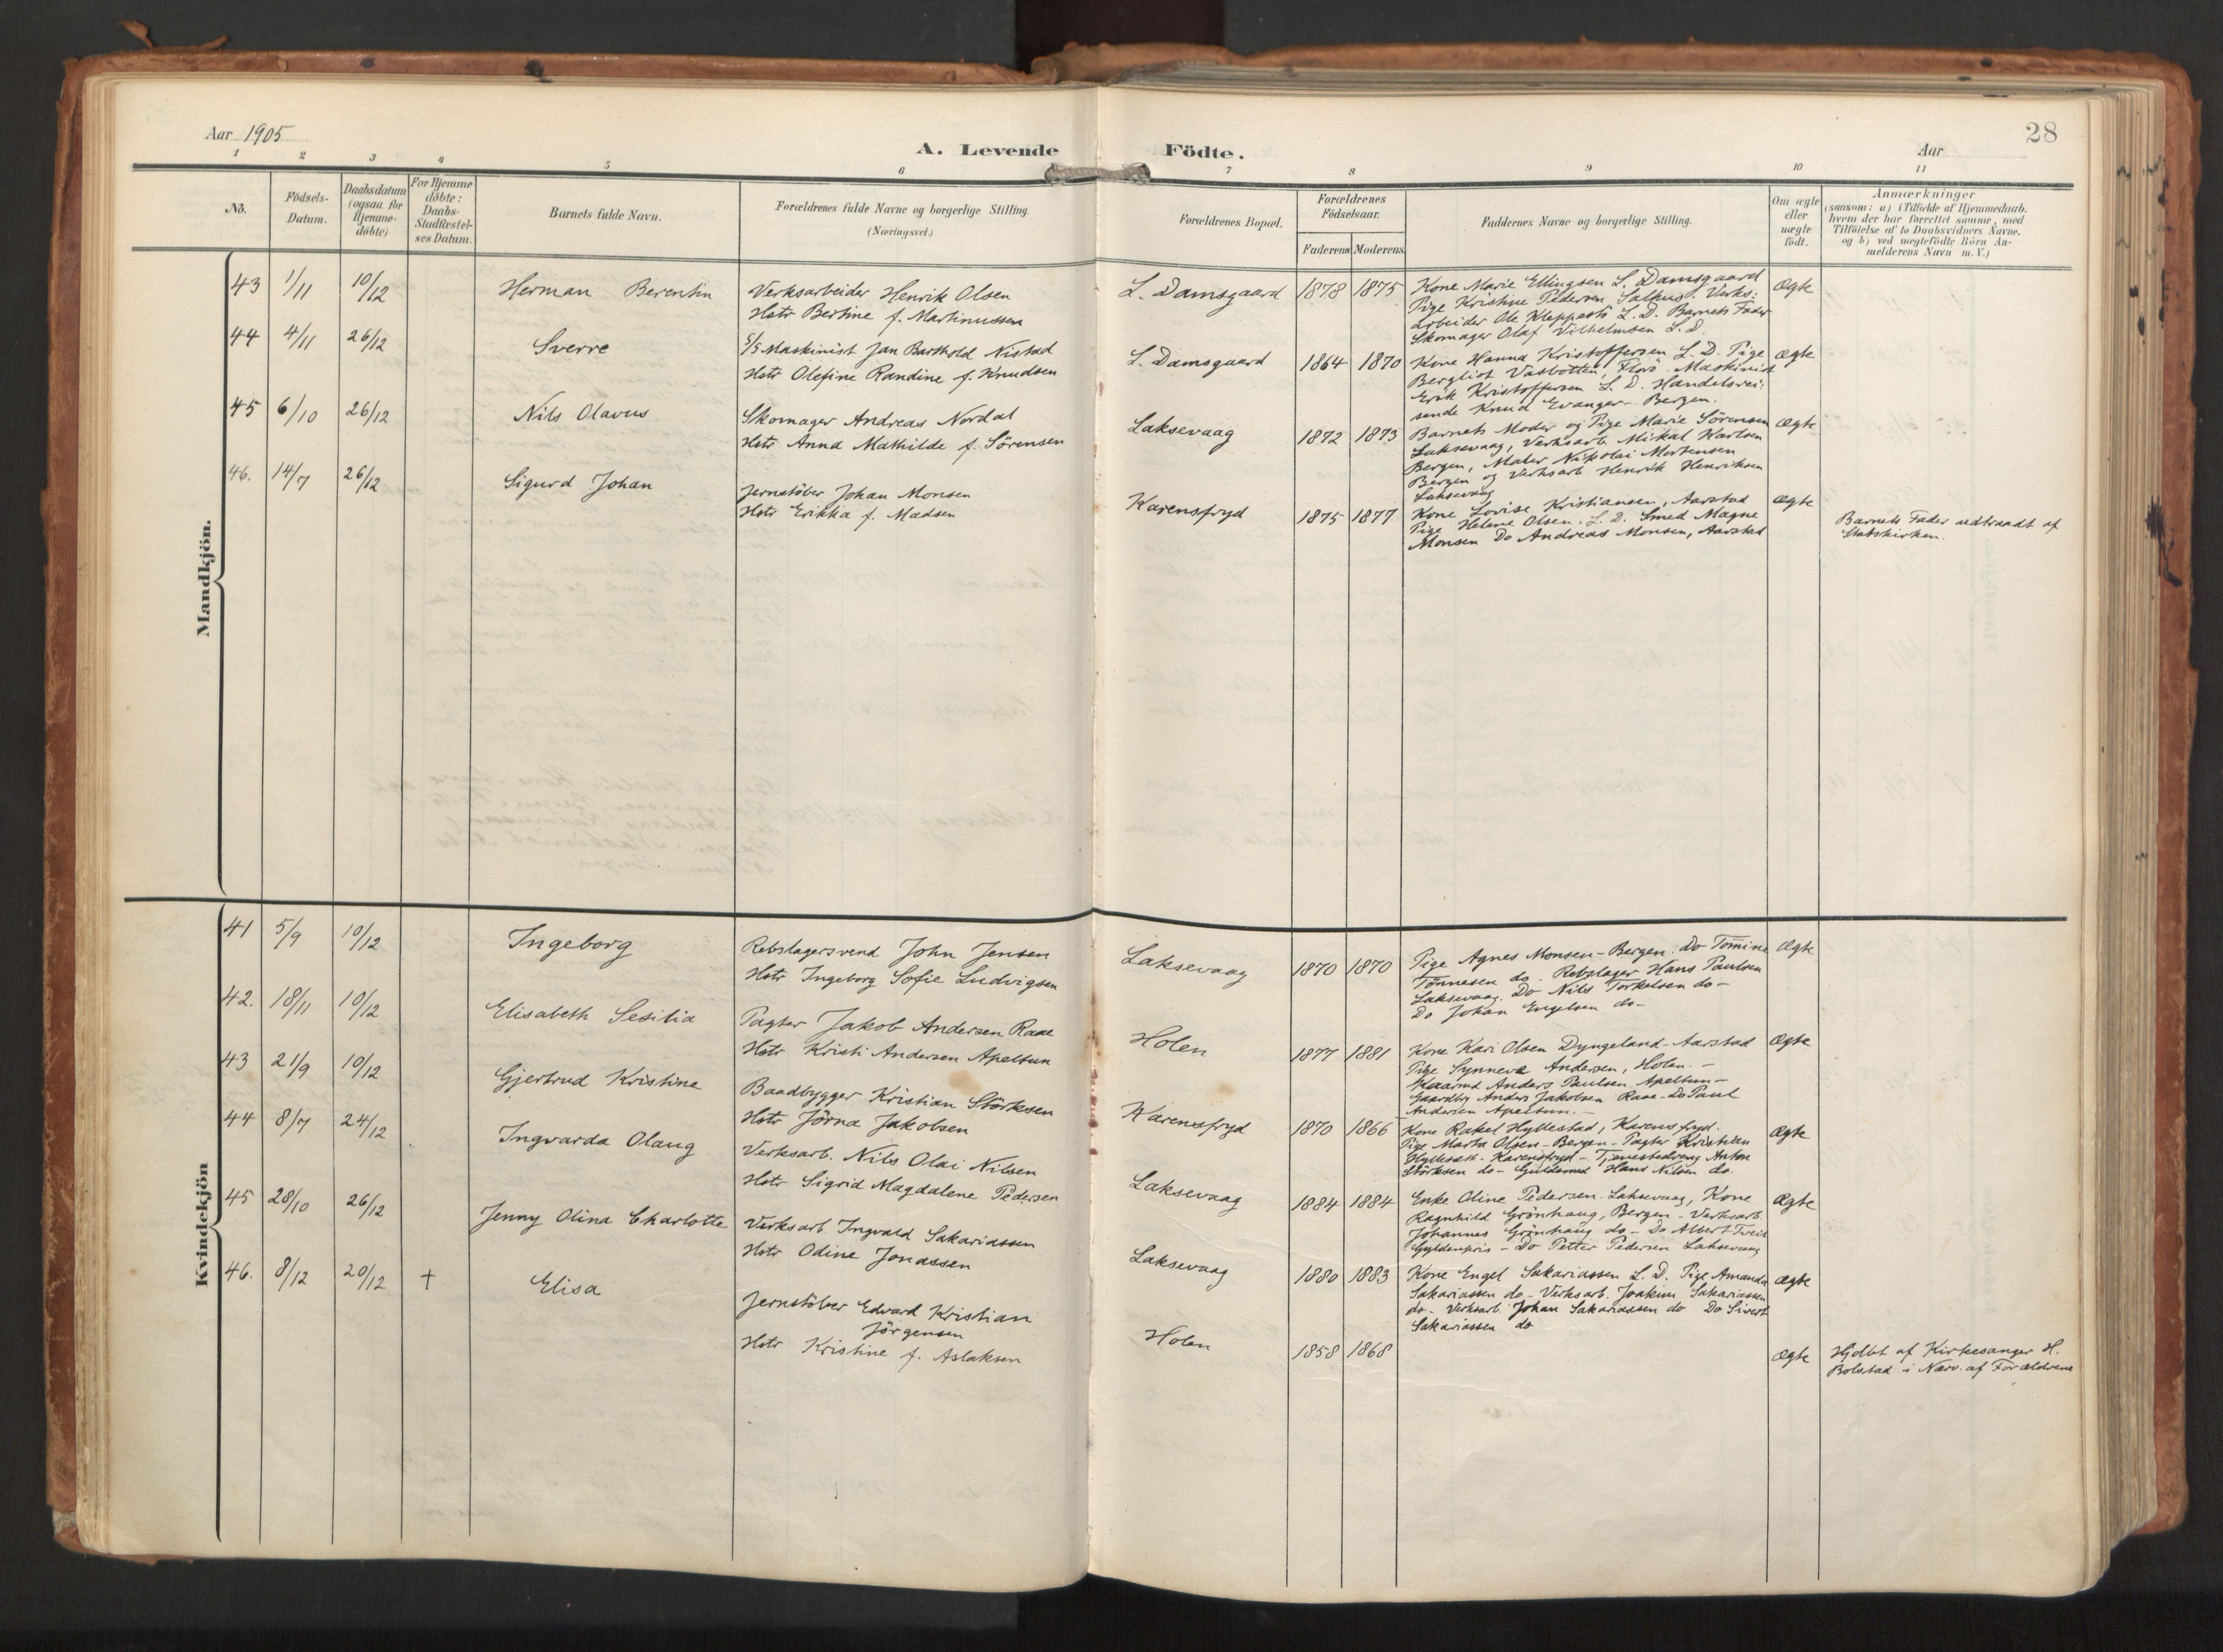 Aar 1905
A. Levende Födte.
Aar
28
1 2 3 4 5 6 7 8 9 10 11
No.
Födsels-
Datum.
Daabsdatum
(ogsaa for
Hjemme-
döbte)
For Hjemme
döbte:
Daabs-
Stadfæstel-
ses Datum.
Barnets fulde Navn.
Forældrenes fulde Navne og borgerlige Stilling.
(Næringsvei.)
Forældrenes Bopæl.
Forældrenes
Födselsaar.
Faderens Moderens
Faddernes Navne og borgerlige Stilling.
Om ægte
eller
uægte
födt.
Anmærkninger
(saasom: a) i Tilfælde af Hjemmedaab,
hvem der har forrettet samme, med
Tilföielse af to Daabsvidners Navne,
og b) ved uægtefödte Börn An-
melderens Navn m.V.)
Mandkjön.
43 1/11 10/12 Herman Berentin
Verksarbeider Henrik Olsen
Hstr Bertine f. Martinussen
L. Damsgaard 1878 1875
Kone Marie Ellingsen L. Damsgaard
Pige Kristine Pedersen Salhus. Verks:
arbeider Ole Kleppestö L. D. Barnets Fader
Skomager Olaf Vilhelmsen L. D.
Ægte
44 4/11 26/12 Sverre
S/S Maskinist Jan Barthold Nistad
Hstr Olefine Randine f. Knudsen
L. Damsgaard 1864 1870
Kone Hanna Kristoffersen L. D. Pige
Bergliot Vasbotten, Florö. Maskinist
Erik Kristoffersen L. D. Handelsrei:
sende Knud Evanger - Bergen.
Ægte
45 6/10 26/12 Nils Olavus
Skomager Andreas Nordal
Hstr Anna Mathilde f. Sörensen
Laksevaag 1872 1873
Barnets Moder og Pige Marie Sörensen
Laksevaag, Verksarb. Mikal Karlsen
Bergen, Maler Nikolai Mortensen
Bergen og Verksarb Henrik Henriksen
Laksevaag
Ægte
46. 14/7 26/12 Sigurd Johan
Jernstöber Johan Monsen
Hstr Erikka f. Madsen
Karensfryd 1875 1877
Kone Lovise Kristiansen, Aarstad
Pige Helene Olsen. L. D. Smed Magne
Monsen Do Andreas Monsen, Aarstad
Ægte
Barnets Fader udtraadt af
Statskirken.
Kvindekjön
41 5/9 10/12 Ingeborg
Rebslagersvend John Jensen
Hstr Ingeborg Sofie Ludvigsen
Laksevaag 1870 1870
Pige Agnes Monsen - Bergen. Do Tomine
Tönnesen do - Rebslager Hans Paulsen
Laksevaag. Do Nils Torkelsen do -
Do Johan Engelsen do -
Ægte
42. 18/11 10/12 Elisabeth Sesilia
Pagter Jakob Andersen Raae
Hstr Kristi Andersen Apeltun
Holen 1877 1881
Kone Kari Olsen Dyngeland - Aarstad
Pige Synneve Andersen, Holen. -
Kaarmd Anders Paulsen Apeltun -
Gaardbr Anders Jakobsen Raae - Do Paul
Andersen Apeltun. -
Ægte
43 21/9 10/12 Gjertrud Kristine
Baadbygger Kristian Störksen
Hstr Jörna Jakobsen
Karensfryd 1870 1866
Kone Rakel Hyllestad, Karensfryd.
Pige Marta Olsen - Bergen - Pagter Kristian
Hyllestad - Karensfryd - Tjenestedreng Anton
Störksen do - Guldsmed Hans Nilsen do.
Ægte
44 8/7 24/12 Ingvarda Olaug
Verksarb. Nils Olai Nilsen
Hstr Sigrid Magdalene Pedersen
Laksevaag 1884 1884
Enke Oline Pedersen. Laksevaag, Kone
Ragnhild Grönhaug, Bergen - Verksarb.
Johannes Grönhaug do - Do Albert Tveit
Gyldenpris - Do Petter Pedersen Laksevaag
Ægte
45 28/10 26/12 Jenny Olina Charlotte
Verksarb Ingvald Sakariassen
Hstr Odine Jonassen
Laksevaag 1880 1883
Kone Engel Sakariassen L. D. Pige Amanda
Sakariassen do - Verksarb. Joakim Sakariassen
do - Verksarb. Johan Sakariassen do Do Sivert
Sakariassen do
Ægte
46. 8/12 20/12 + Elisa
Jernstöber Edvard Kristian
Jörgensen
Hstr Kristine f. Aslaksen
Holen 1858 1868
Ægte
Hjdbt af Kirkesanger H.
Bolstad i Nærv. af Forældrene